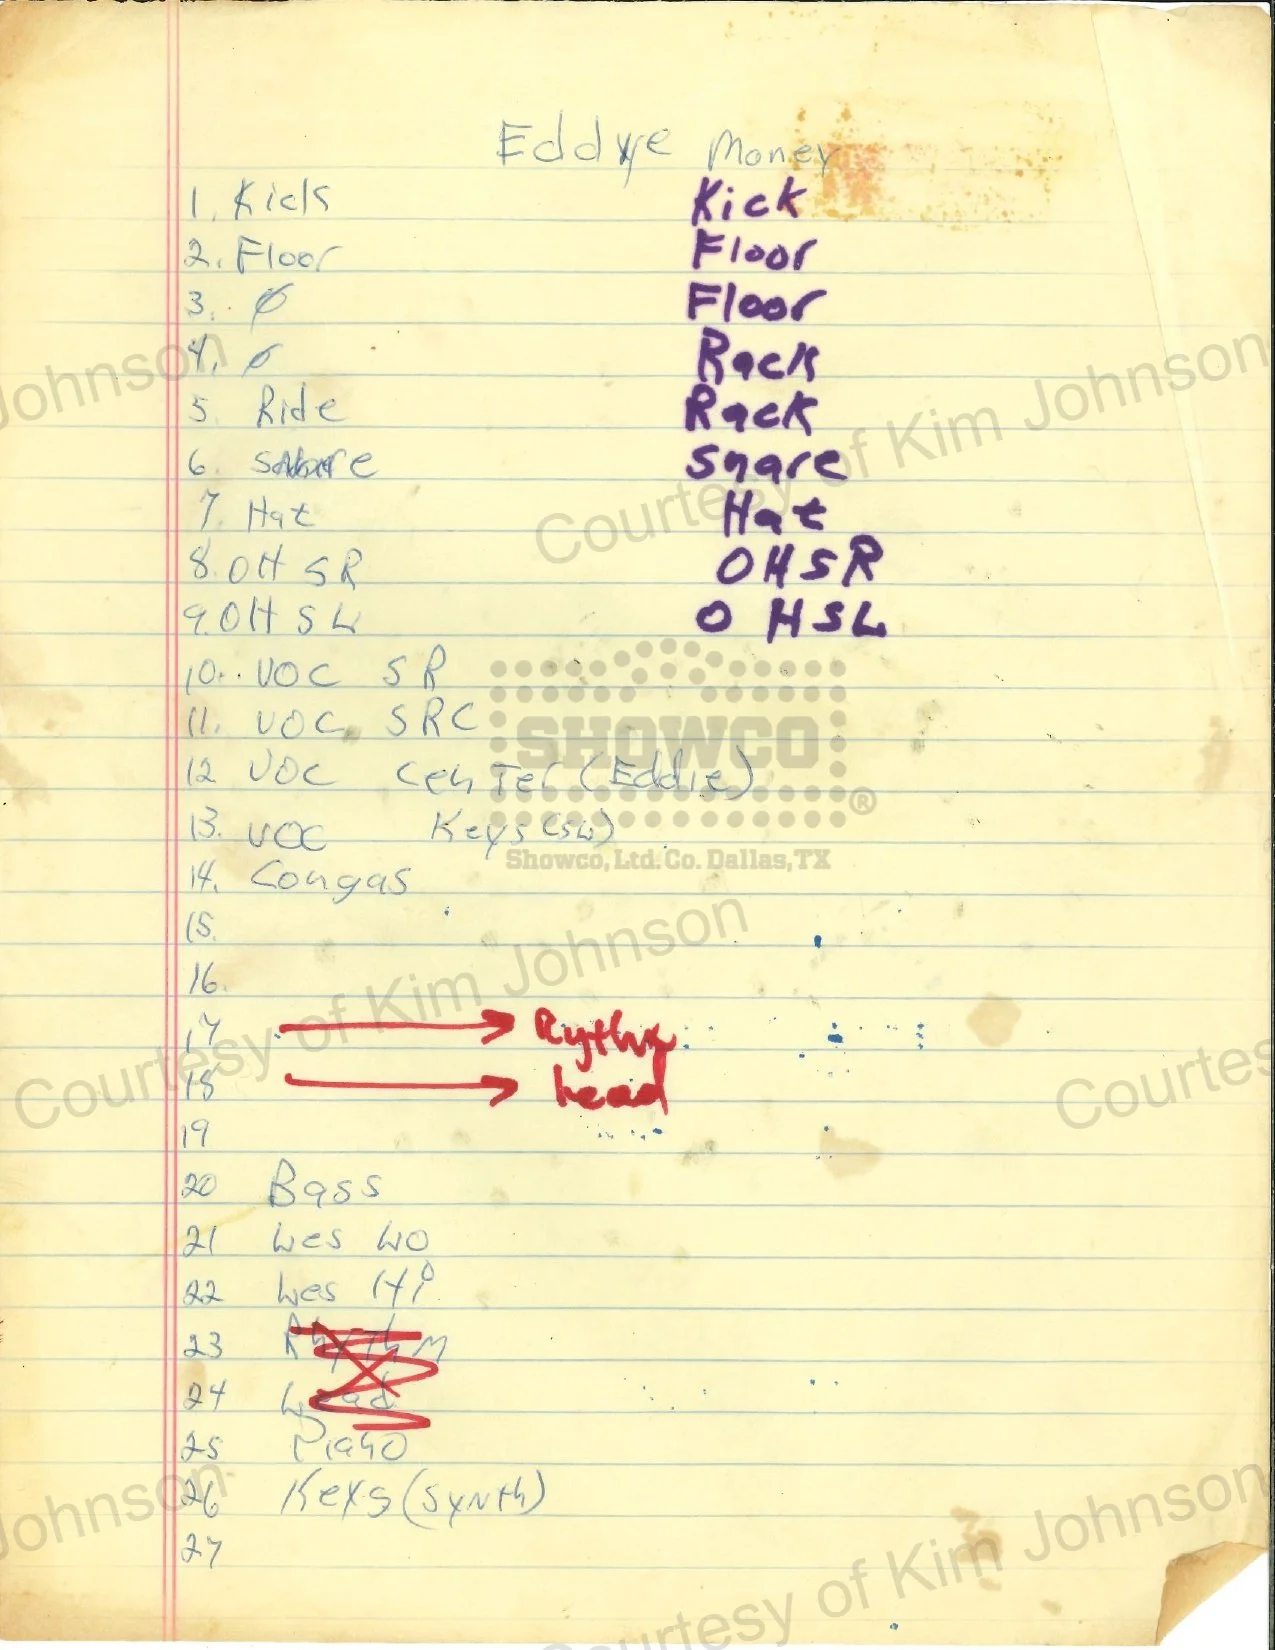 Eddye Money
1. Kick Kick
2. Floor Floor
3. ø Floor
4. ø Rack
5. Ride Rack
6. Snare Snare
7. Hat Hat
8. OH SR OHSR
9. OH SL OHSL
10. VOC SR
11. VOC SRC
12 VOC Center (Eddie)
13. VOC Keys (SL)
14. Congas
15.
16.
17 → Rythm
18 → Lead
19
20 Bass
21 Les Lo
22 Les Hi
23 Rhythm
24 Lead
25 Piano
26 Keys (Synth)
27
SHOWCO®
Showco, Ltd. Co. Dallas, TX
Johnson
Courtesy of Kim Johnson
Courtesy of Kim Johnson
Courtes
Johnson
Courtesy of Kim Johnson